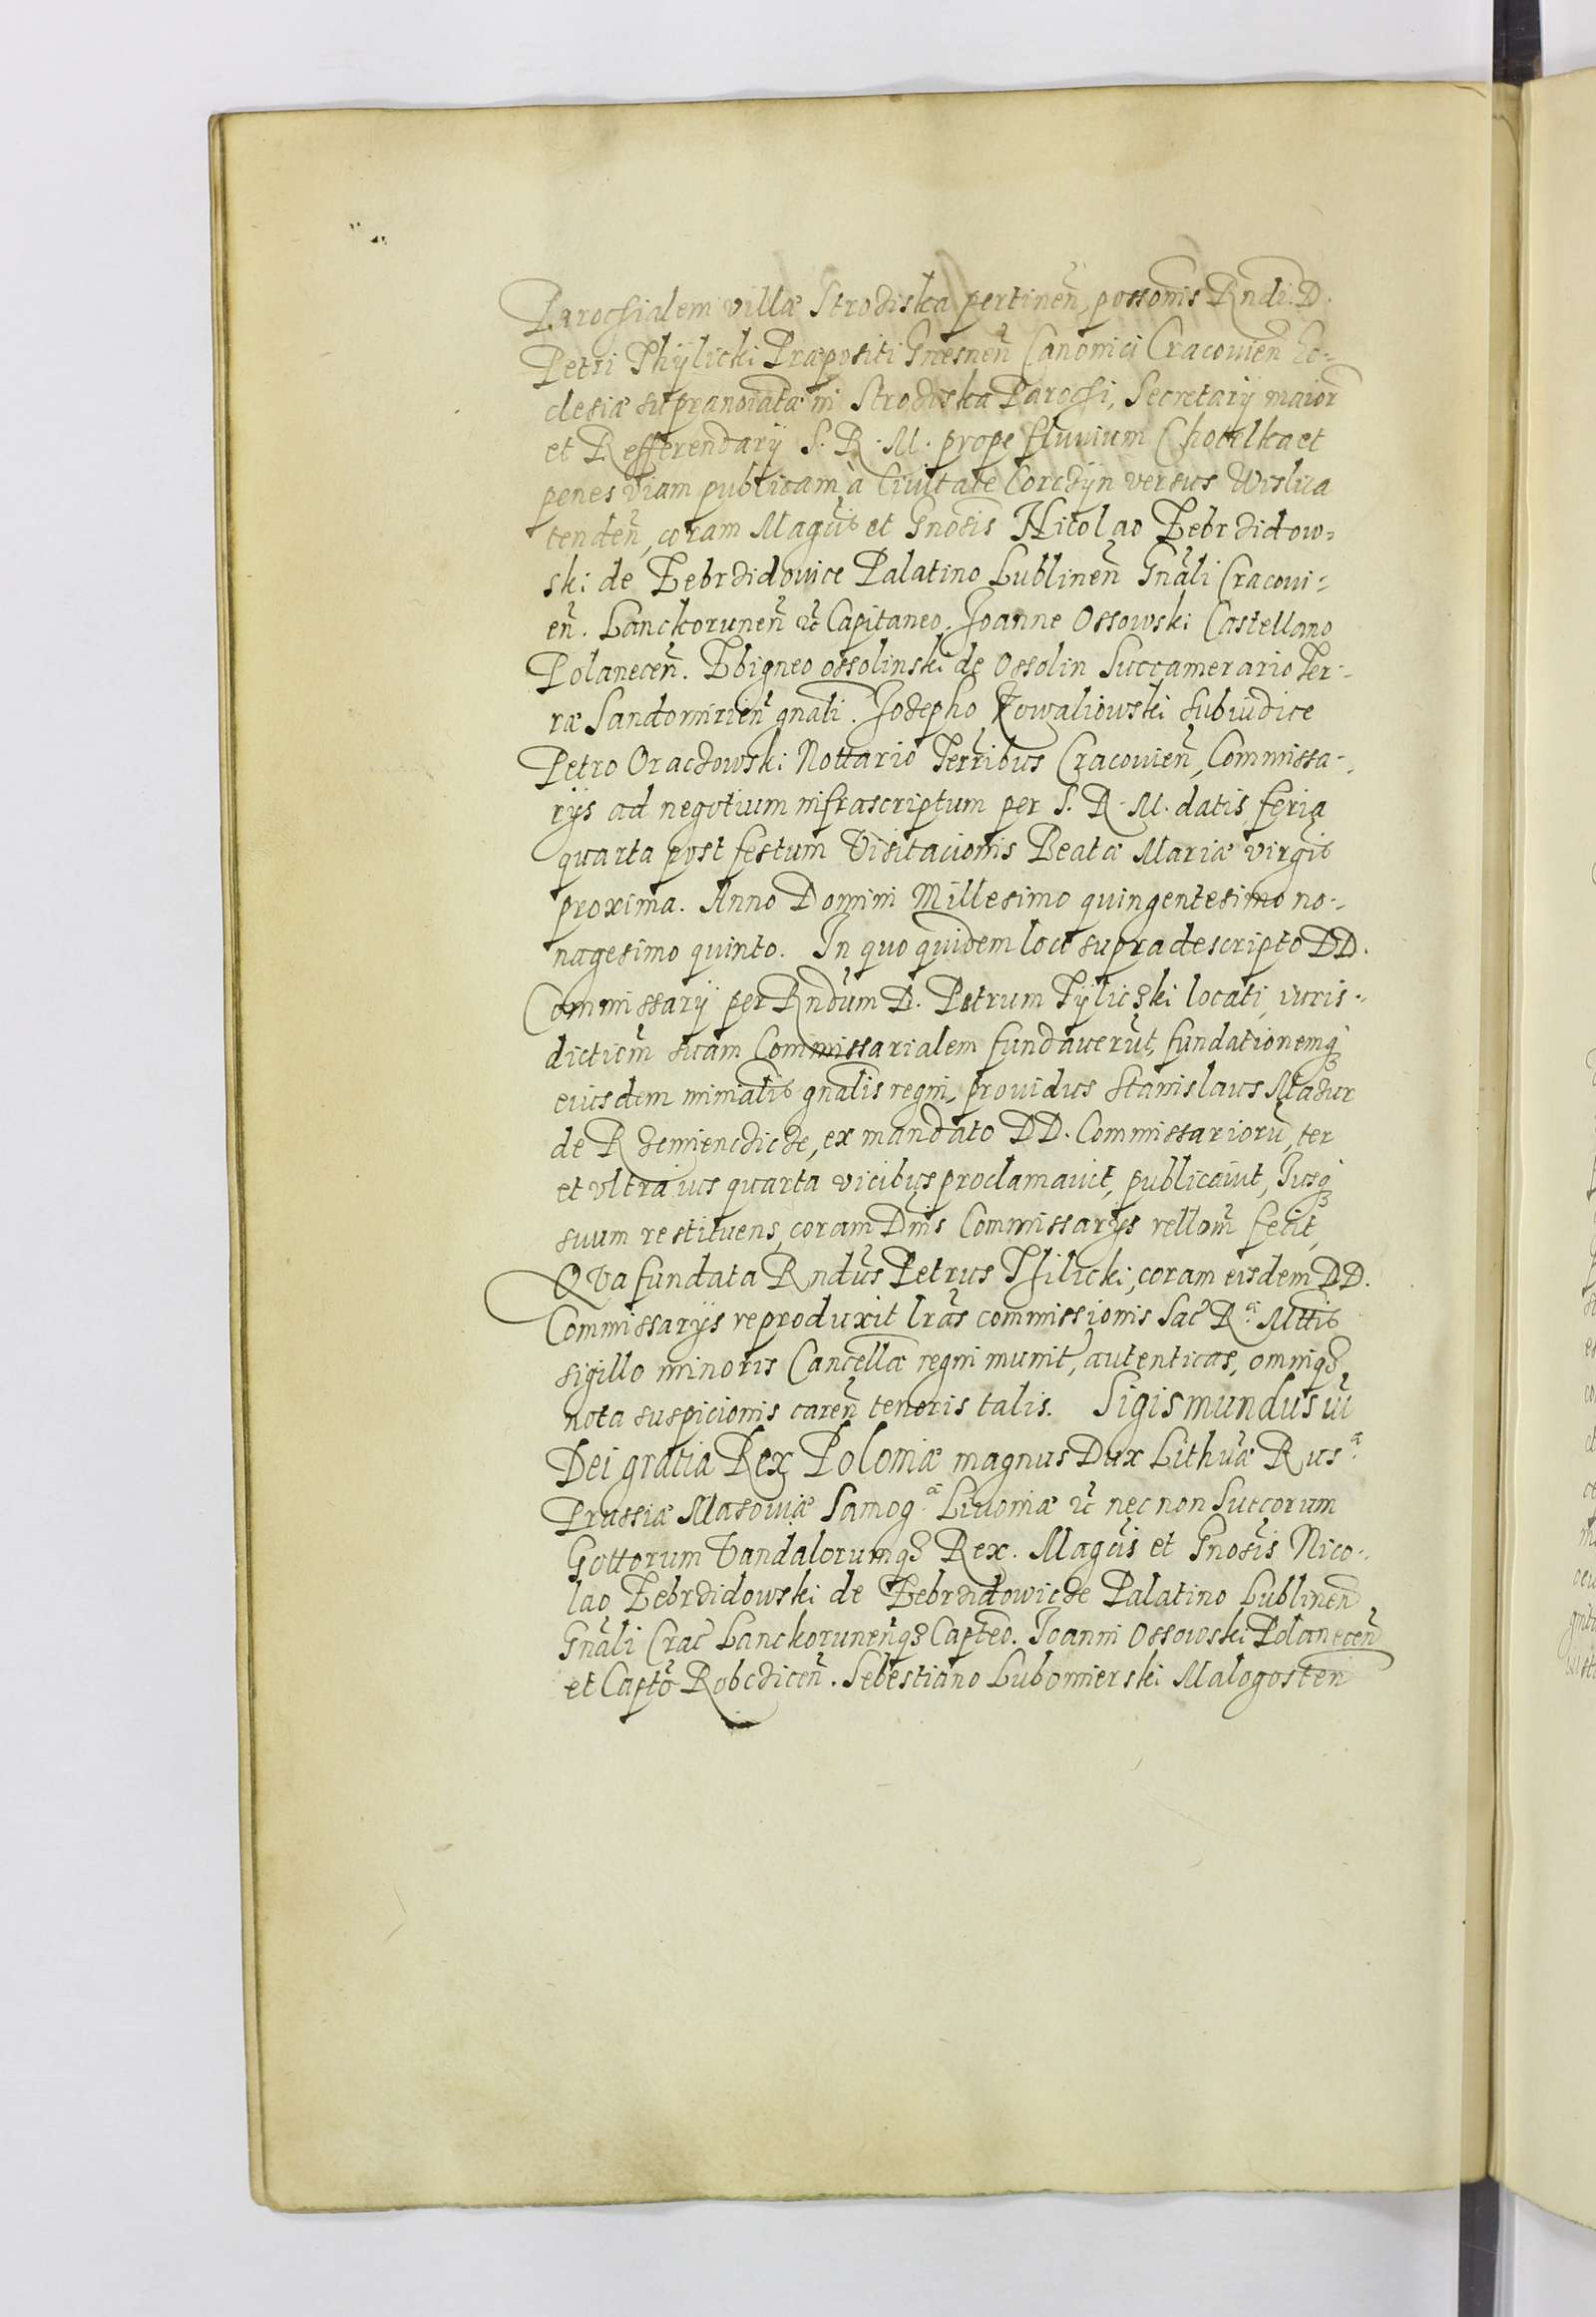 Parochialem villæ Stroziska pertinen̄, possonis Rndi. D.
Petri Thÿlicki Præpositi Gnesnen̄ Canonici Cracouien̄ Ec-
clesiæ supranoiatæ in Stroziska Parochi, Secretarÿ maior
et Refferendarÿ S. R. M. prope fluuium Chotelka et
penes viam publicam à Ciuitate Corczÿn versus Wislica
tenden̄, coram Magcis et Gnosis Nicolao Zebrzidow-
ski de Zebrzidovice Palatino Lublinen̄ Gnāli Cracoui-
en̄. Lanckorunen̄ &c Capitaneo. Joanne Ossowski Castellano
Polanecen̄. Zbigneo Ossolinski de Ossolin Succamerario Ter-
ræ Sandomirien̄ gnali. Josepho Kowaliowski subiudice
Petro Oraczowski Nottario Terribus Cracouien̄, Commissa-
rÿs ad negotium infrascriptum per S. R. M. datis, feria
quarta post festum Visitacionis Beatæ Mariæ virgis
proxima. Anno Domini Millesimo quingentesimo no-
nagesimo quinto. In quo quidem loco supradescripto DD.
Commissarÿ per Rndum D. Petrum Tÿliczki locati, iuris-
dictiom̄ suam Commissarialem fundauerut, fundationemq̃
eiusdem minialis gnalis regni, prouidus Stanislaus Mazur
de Rzemienczicze, ex mandato DD. Commissarioru, ter
et vltra ius quarta vicibus proclamauit, publicauit, Jusq̃
suum restituens, coram Dnis Commissarÿs rellom̄ fecit,
Qva fundata Rndus Petrus Thilicki, coram eisdem DD.
Commissarÿs reproduxit lras commissionis Sac Rª Mttis
sigillo minoris Cancellæ regni munit, autenticas, omniq3
nota suspicionis caren̄ tenoris talis. Sigismundus iii
Dei gratia Rex Poloniæ magnus Dux Lithuæ Rusæ
Prussiæ Masouiæ Samogæ Liuoniæ &c nec non Suecorum
Gottorum Vandalorumq3 Rex. Magcis et Gnosis Nico-
lao Zebrzidowski de Zebrzidowicze Palatino Lublinen̄
Gnāli Crac Lanckorunen̄q3 Capteo. Joanni Ossowski Polanecen̄
et Capto Robczicen̄. Sebestiano Lubomierski Malogosten̄